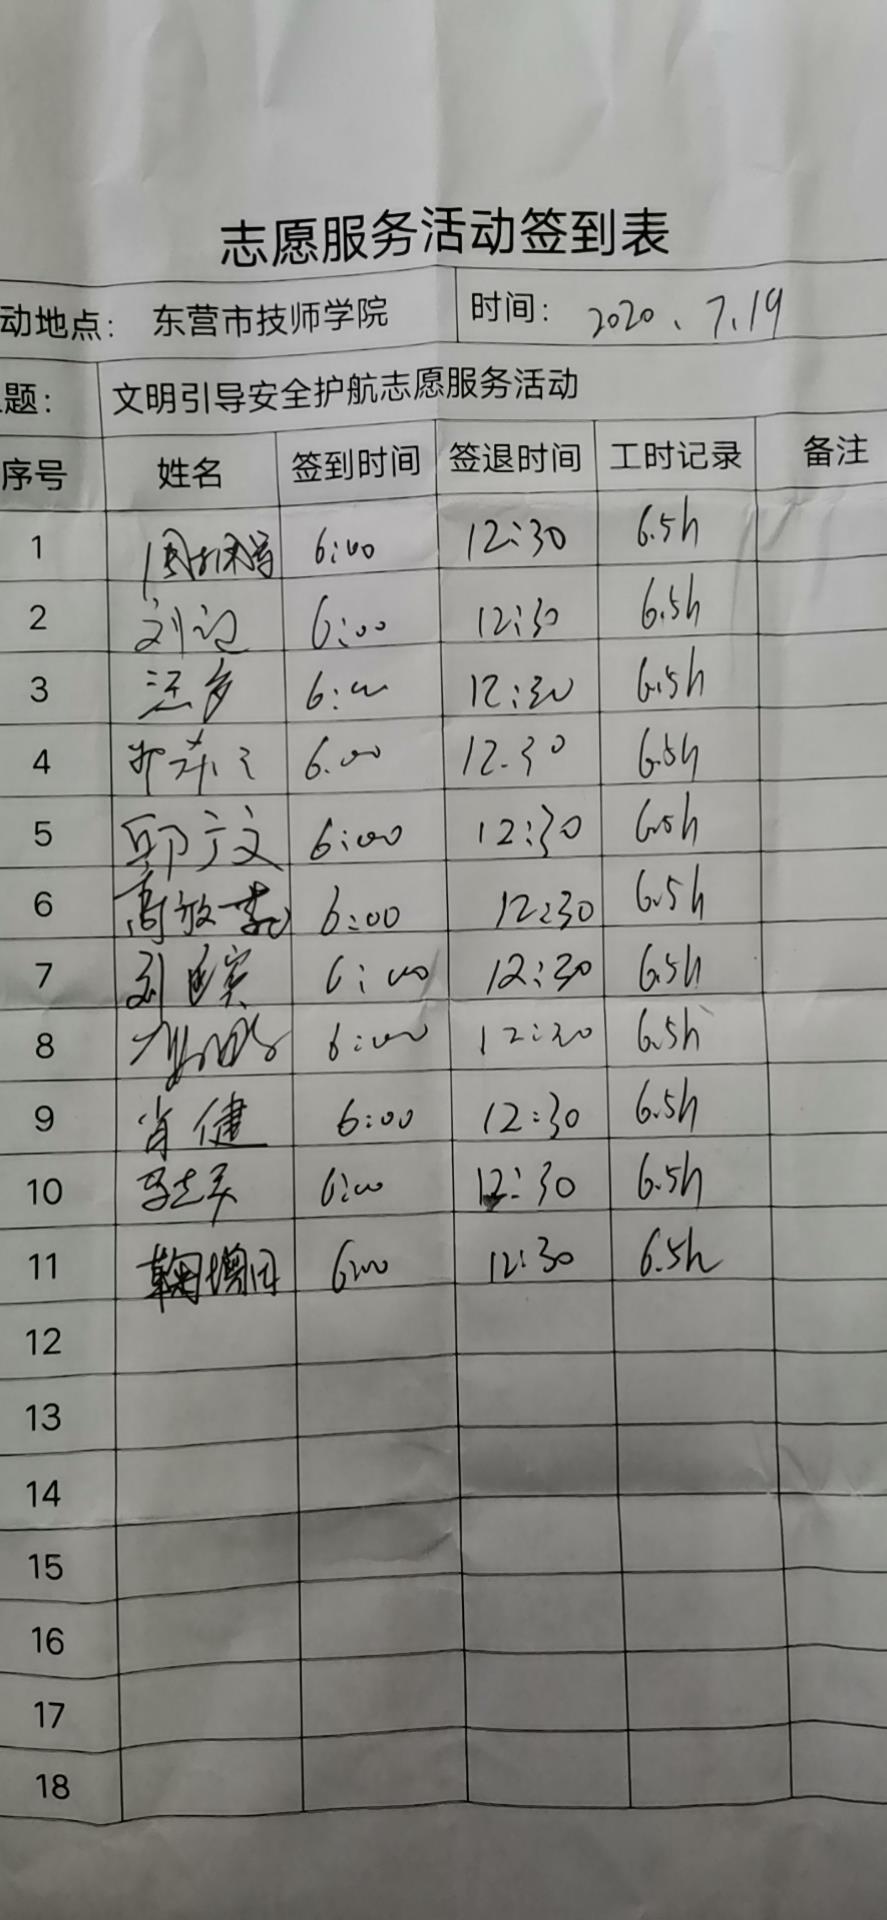 志愿服务活动签到表
动地点： 东营市技师学院 时间： 2020、7.19
题： 文明引导安全护航志愿服务活动
序号 姓名 签到时间 签退时间 工时记录 备注
1 6:00 12:30 6.5h
2 刘 6:00 12:30 6.5h
3 6:00 12:30 6.5h
4 6.00 12.30 6.5h
5 郭文 6:00 12:30 6.5h
6 高放 6:00 12:30 6.5h
7 刘 6:00 12:30 6.5h
8 6:00 12:30 6.5h
9 肖健 6:00 12:30 6.5h
10 6:00 12:30 6.5h
11 鞠增 6:00 12:30 6.5h
12
13
14
15
16
17
18